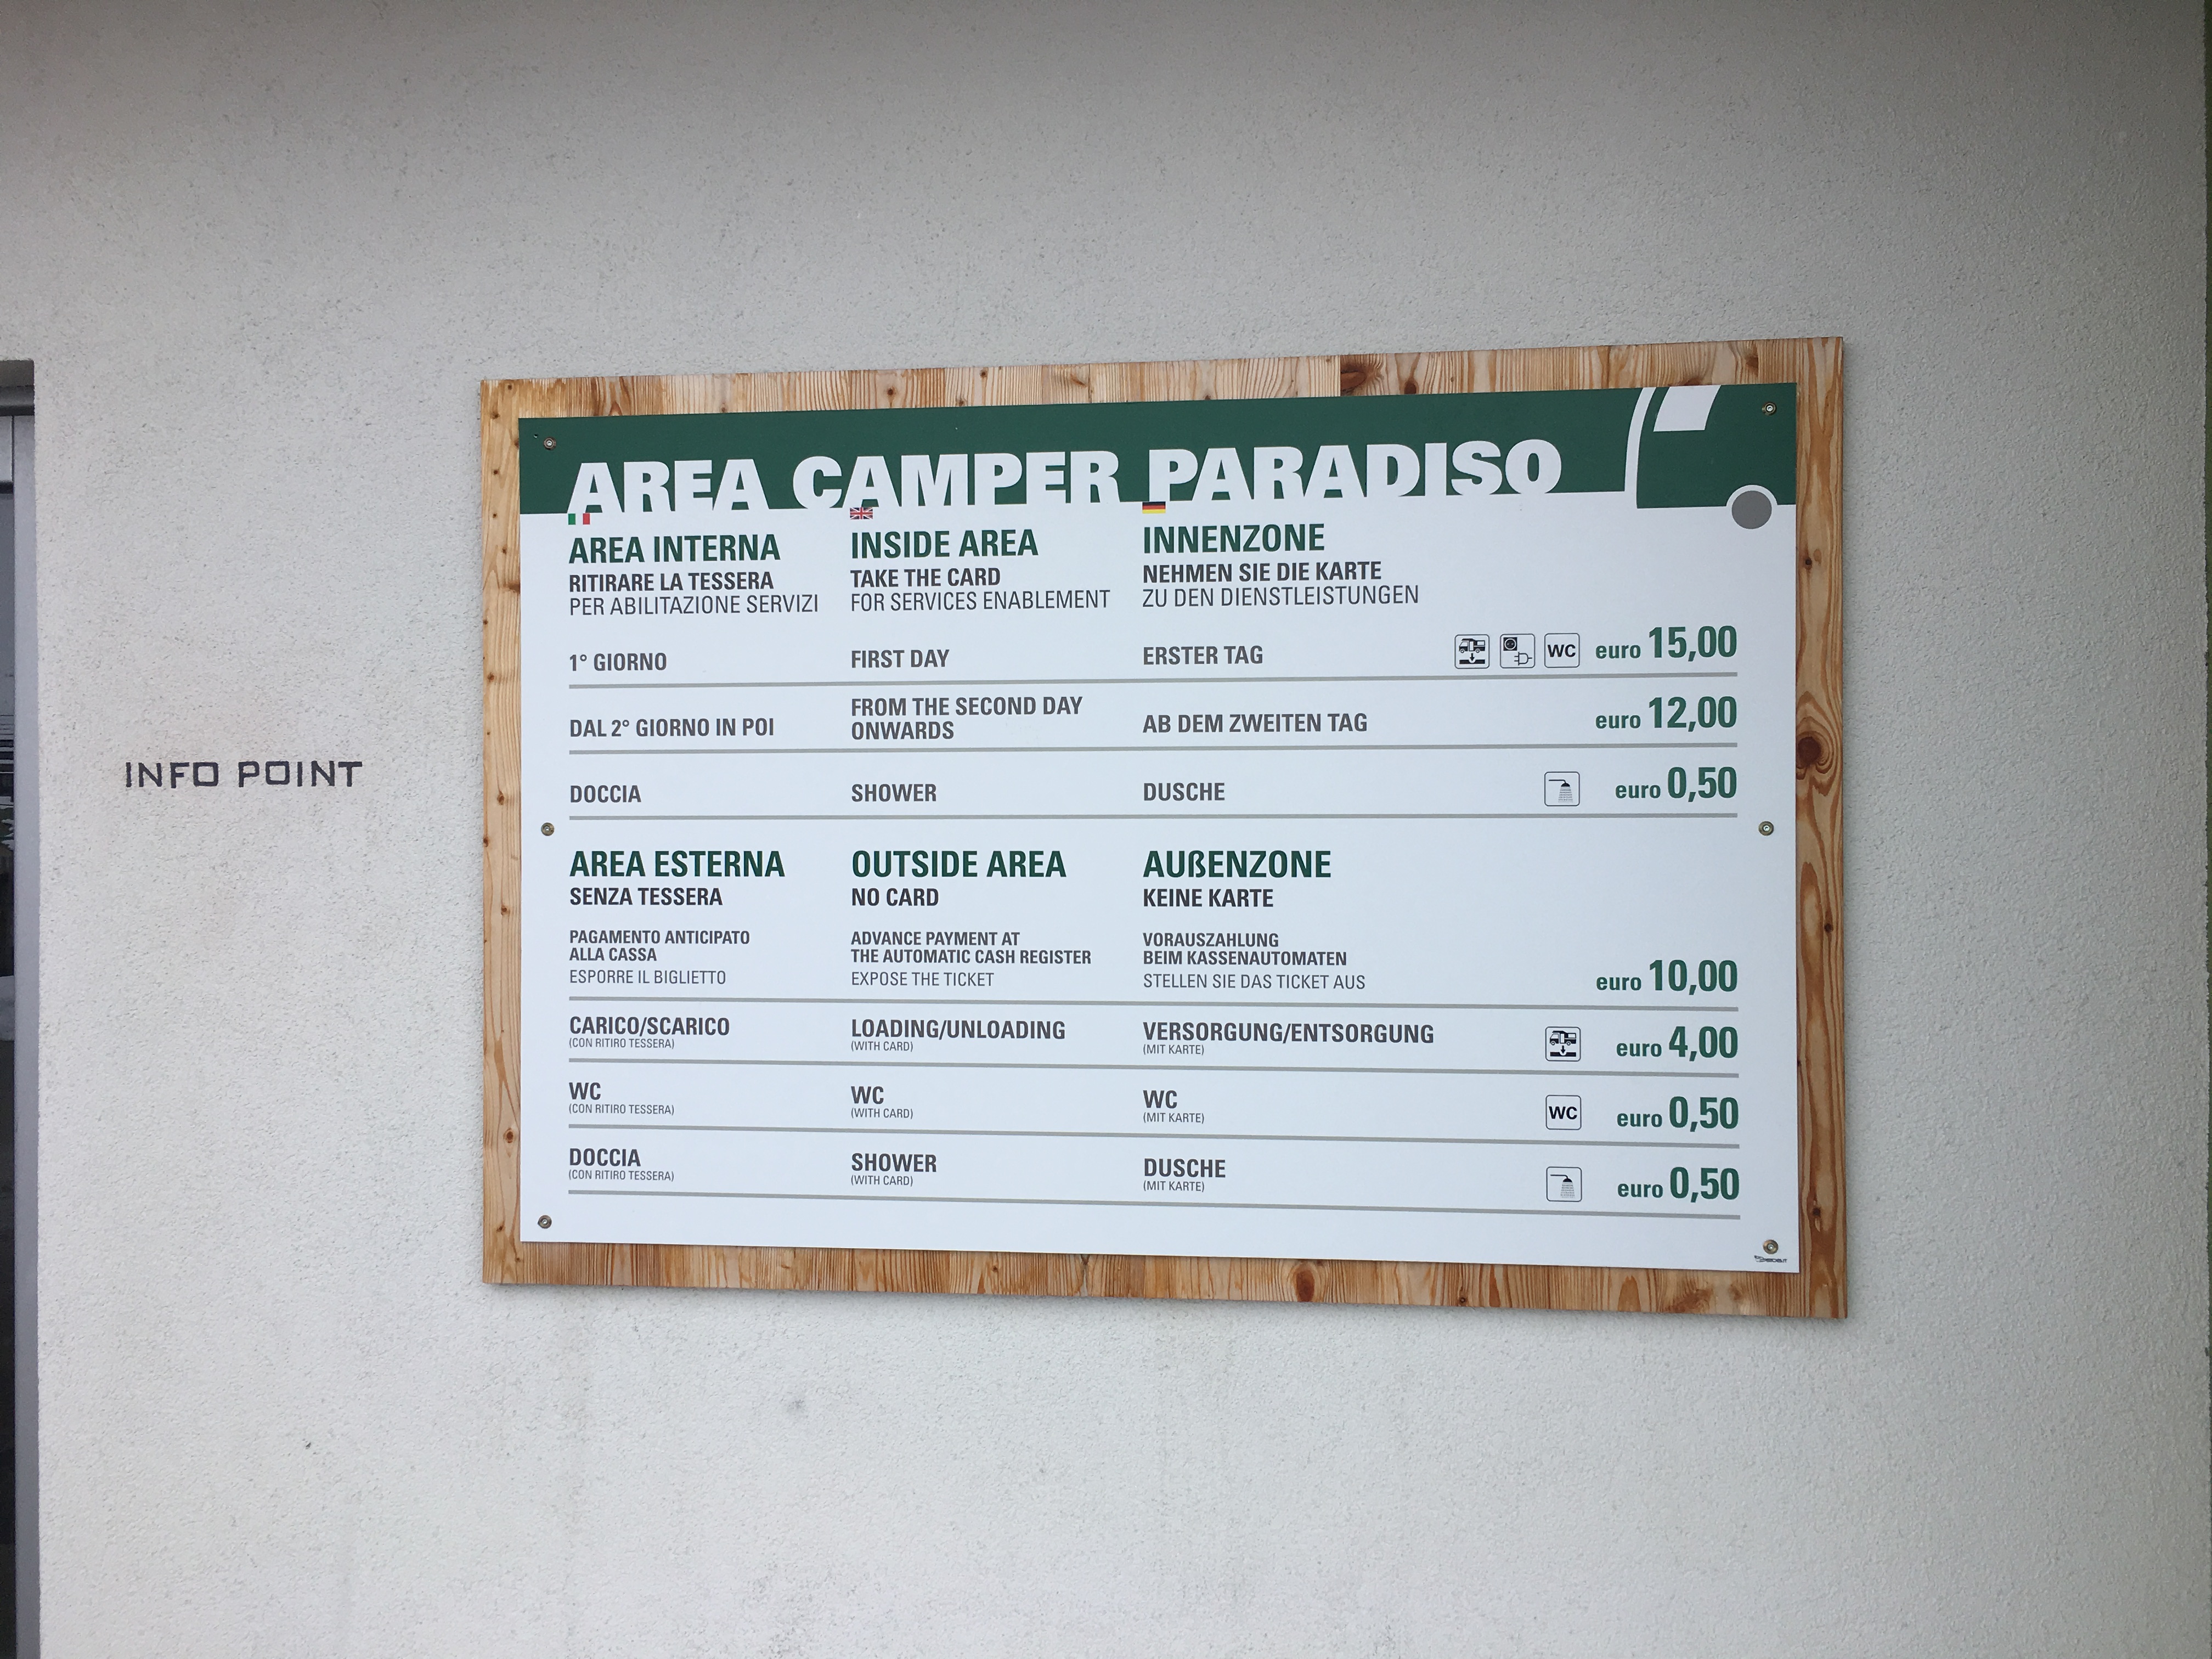 INFO POINT
AREA CAMPER PARADISO
AREA INTERNA
RITIRARE LA TESSERA
PER ABILITAZIONE SERVIZI
INSIDE AREA
TAKE THE CARD
FOR SERVICES ENABLEMENT
INNENZONE
NEHMEN SIE DIE KARTE
ZU DEN DIENSTLEISTUNGEN
1° GIORNO
FIRST DAY
ERSTER TAG
WC
euro 15,00
DAL 2° GIORNO IN POI
FROM THE SECOND DAY
ONWARDS
AB DEM ZWEITEN TAG
euro 12,00
DOCCIA
SHOWER
DUSCHE
euro 0,50
AREA ESTERNA
SENZA TESSERA
OUTSIDE AREA
NO CARD
AUßENZONE
KEINE KARTE
PAGAMENTO ANTICIPATO
ALLA CASSA
ESPORRE IL BIGLIETTO
ADVANCE PAYMENT AT
THE AUTOMATIC CASH REGISTER
EXPOSE THE TICKET
VORAUSZAHLUNG
BEIM KASSENAUTOMATEN
STELLEN SIE DAS TICKET AUS
euro 10,00
CARICO/SCARICO
(CON RITIRO TESSERA)
LOADING/UNLOADING
(WITH CARD)
VERSORGUNG/ENTSORGUNG
(MIT KARTE)
euro 4,00
WC
(CON RITIRO TESSERA)
WC
(WITH CARD)
WC
(MIT KARTE)
WC
euro 0,50
DOCCIA
(CON RITIRO TESSERA)
SHOWER
(WITH CARD)
DUSCHE
(MIT KARTE)
euro 0,50